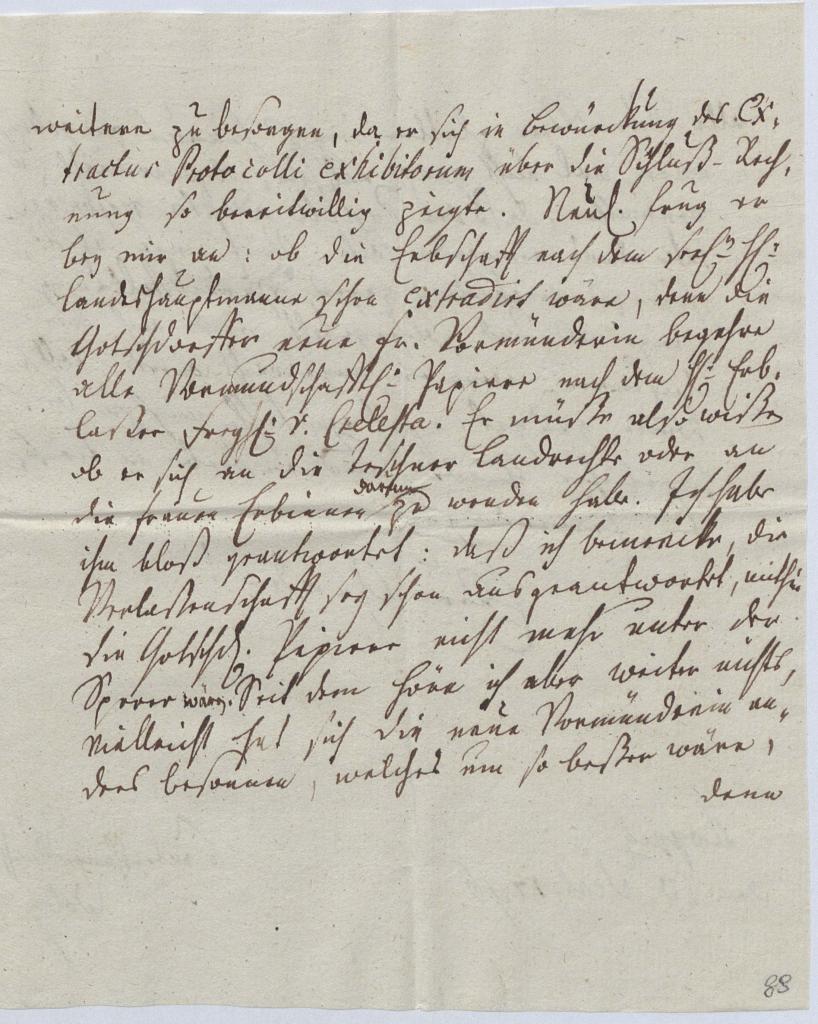 weitere zu besorgen, da er sich in Bewürckung des Ex-
tractus Protocolli exhibitorum über die Schluß-Rech,
nung so bereitwillig zeigte. Neul. frug er
bey mir an: ob die Erbschaft nach dem seel: H:
Landeshauptmanne schon extradirt wäre, denn die
Gotschdorffer neue Fr. Vormünderin begehre
alle Vormundschaftl: Papiere nach dem H: Erb-
laßer Freyh: v. Celesta. Er müßte also wißen
ob er sich an die Teschner Landrechte oder an
die frauen Erbinnen darum zu wenden habe. Ich habe
ihm bloß geantwortet: daß ich bemercke, die
Verlaßenschaft sey schon ausgeantwortet, mithin
die Gotschd. Papiere nicht mehr unter der
Sperre wären. Seit dem höre ich aber weiter nichts,
vielleicht hat sich die neue Vormünderin an-
ders besonnen, welches um so beßer wäre,
denn
88